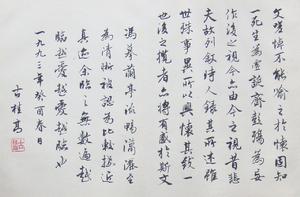 文嗟悼不能喻之於懷固知
一死生為虛誕齊彭殤為妄
作後之視今亦由今之視昔悲
夫故列敘時人錄其所述雖
世殊事異所以興懷其致一
也後之攬者亦將有感於斯文
馮摹蘭亭流暢瀟灑全
為清晰被認為比較接近
真迹余臨之無數遍越
臨越愛越愛越臨也
一九九三年癸酉春日
古桂高